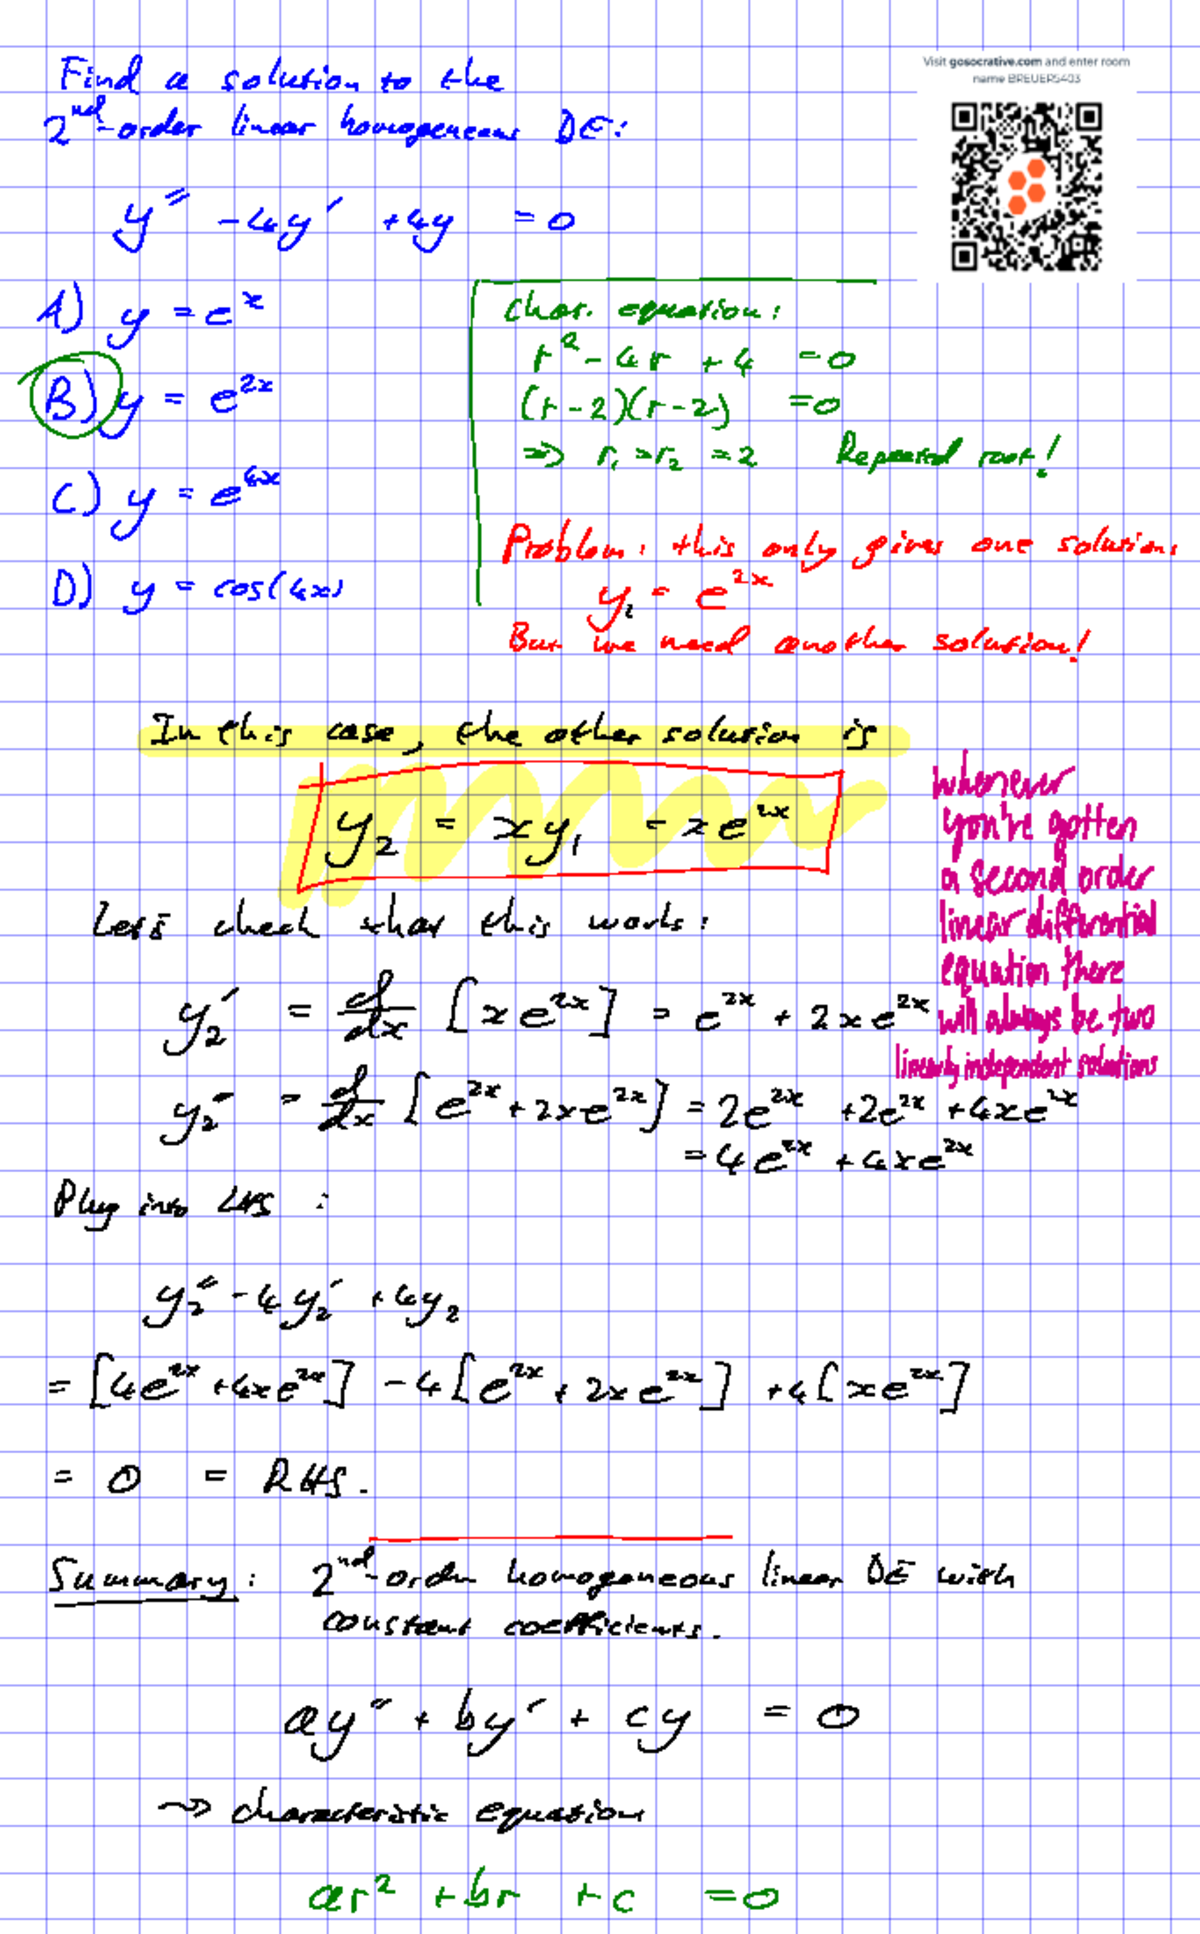 Visit gosocrative.com and enter room
name BREUER5403
Find a solution to the
2nd-order linear homogeneous DE:
y'' - 4y' + 4y = 0
A) y = e^x
B) y = e^2x
C) y = e^4x
D) y = cos(4x)
Char. equation:
r² - 4r + 4 = 0
(r-2)(r-2) = 0
=> r₁ = r₂ = 2 Repeated root!
Problem: this only gives one solution:
y₁ = e^2x
But we need another solution!
In this case, the other solution is
y₂ = xy₁ = xe^2x
whenever
you're gotten
a second order
linear differential
equation there
will always be two
linearly independent solutions
Let's check that this works:
y₂' = d/dx [xe^2x] = e^2x + 2xe^2x
y₂'' = d/dx [e^2x + 2xe^2x] = 2e^2x + 2e^2x + 4xe^2x
= 4e^2x + 4xe^2x
Plug into LHS :
y₂'' - 4y₂' + 4y₂
= [4e^2x + 4xe^2x] - 4[e^2x + 2xe^2x] + 4[xe^2x]
= 0 = RHS.
Summary: 2nd-order homogeneous linear DE with
constant coefficients.
ay'' + by' + cy = 0
~> characteristic equation
ar² + br + c = 0